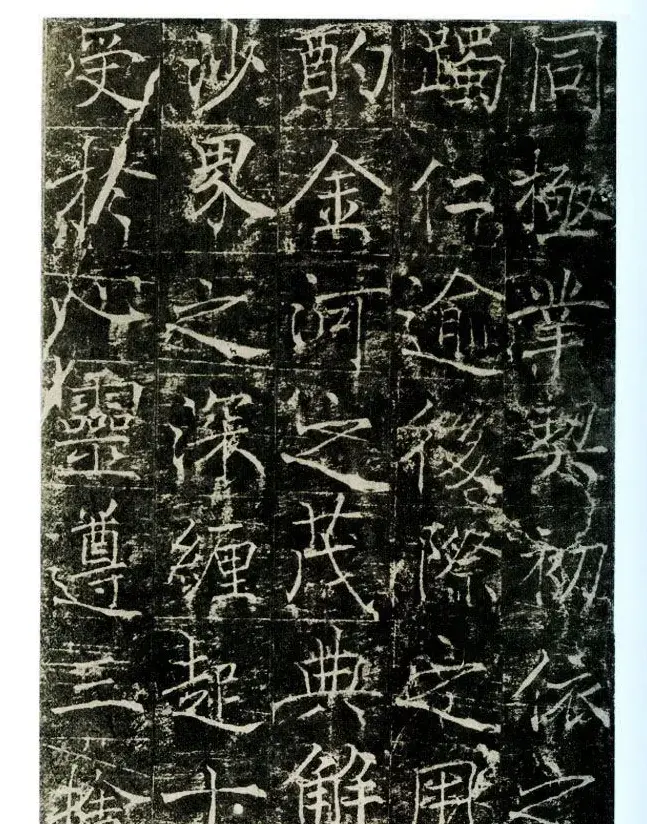 同極業契初依之
躅仁逾後際之用
酌金河之茂典解
沙界之深纏起十
受於靈遵三